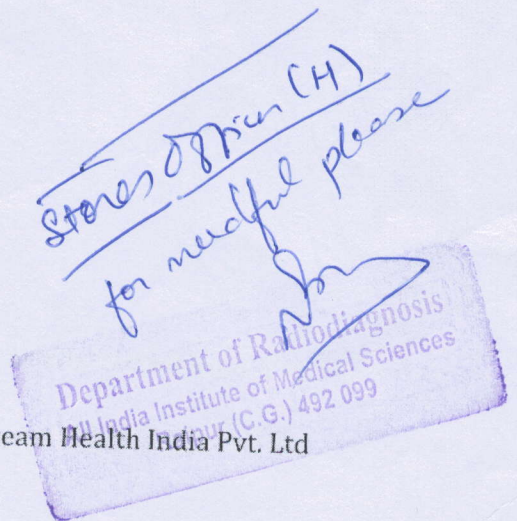 Stores Officer (H)
for needful please
Department of Radiodiagnosis
All India Institute of Medical Sciences
Raipur (C.G.) 492 099
eam Health India Pvt. Ltd